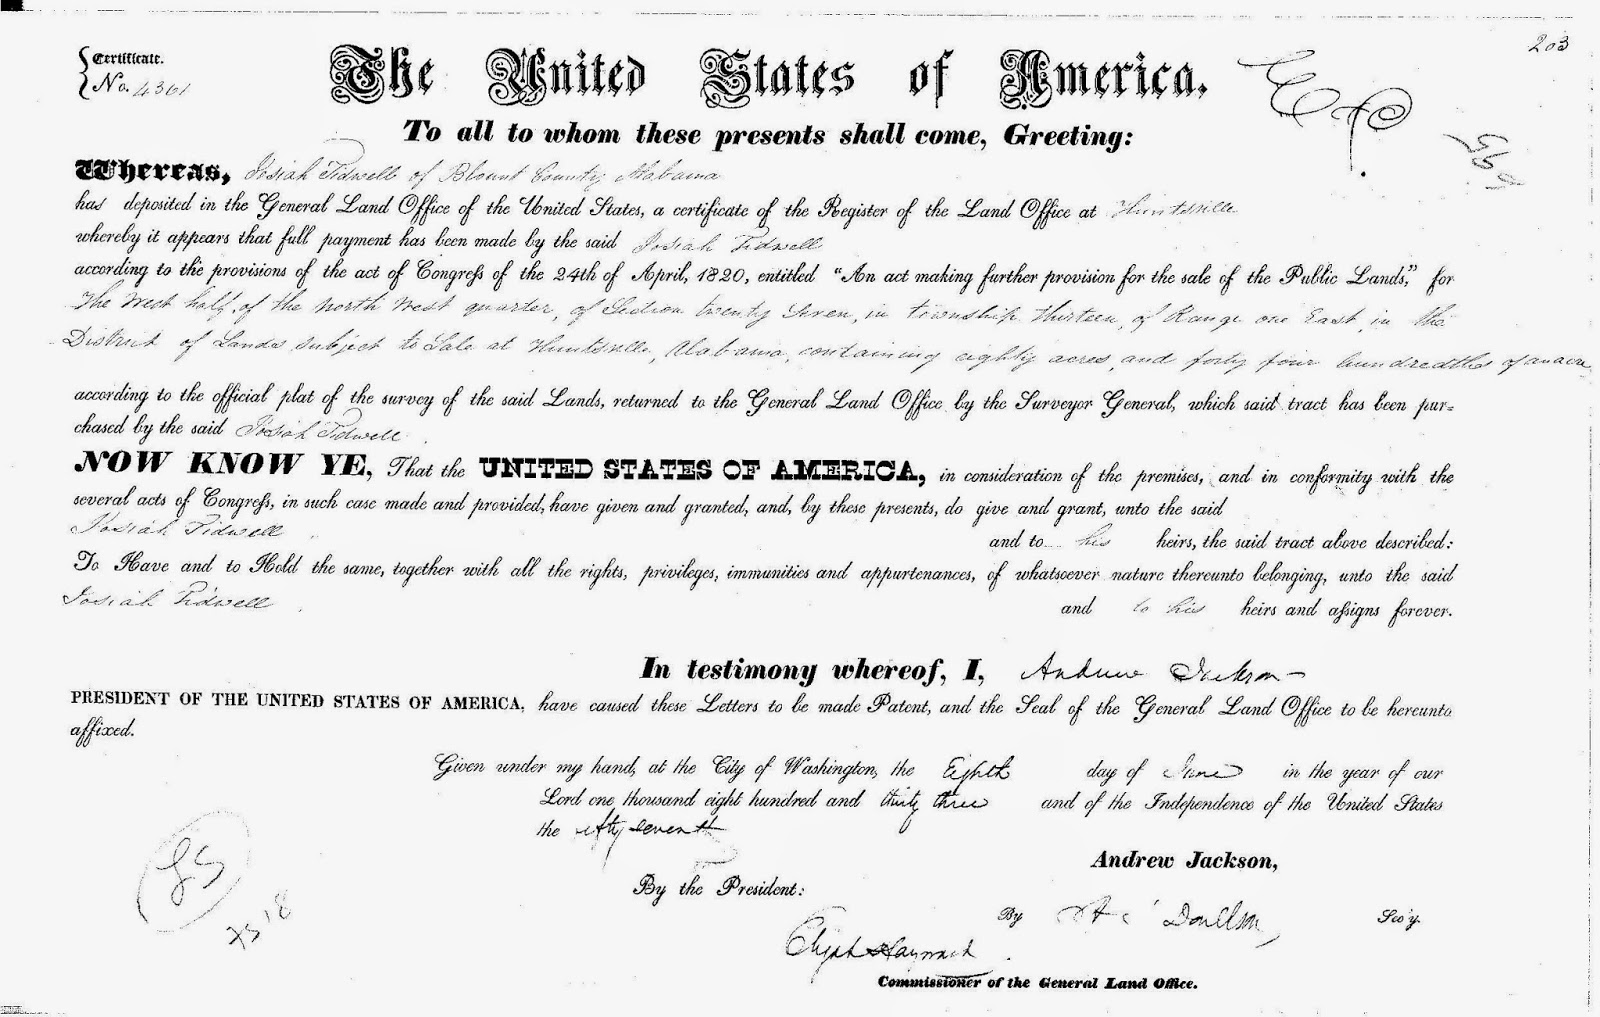 203
Certificate.
No. 4361
The United States of America.
To all to whom these presents shall come, Greeting:
Whereas, Josiah Tidwell of Blount County Alabama
has deposited in the General Land Office of the United States, a certificate of the Register of the Land Office at Huntsville
whereby it appears that full payment has been made by the said Josiah Tidwell
according to the provisions of the act of Congress of the 24th of April, 1820, entitled "An act making further provision for the sale of the Public Lands," for
The West half, of the North West quarter, of Section twenty Seven, in township Thirteen, of Range one East, in the
District of Lands subject to Sale at Huntsville, Alabama, containing eighty acres, and forty four hundredths of an acre
according to the official plat of the survey of the said Lands, returned to the General Land Office by the Surveyor General, which said tract has been pur=
chased by the said Josiah Tidwell
NOW KNOW YE, That the UNITED STATES OF AMERICA, in consideration of the premises, and in conformity with the
several acts of Congress, in such case made and provided, have given and granted, and, by these presents, do give and grant, unto the said
Josiah Tidwell and to his heirs, the said tract above described:
To Have and to Hold the same, together with all the rights, privileges, immunities and appurtenances, of whatsoever nature thereunto belonging, unto the said
Josiah Tidwell and to his heirs and assigns forever.
In testimony whereof, I, Andrew Jackson
PRESIDENT OF THE UNITED STATES OF AMERICA, have caused these Letters to be made Patent, and the Seal of the General Land Office to be hereunto
affixed.
Given under my hand, at the City of Washington, the Eighth day of June in the year of our
Lord one thousand eight hundred and thirty three and of the Independence of the United States
the fifty seventh
Andrew Jackson,
By the President:
By Sec'y.
Elijah Hayward
Commissioner of the General Land Office.
LS